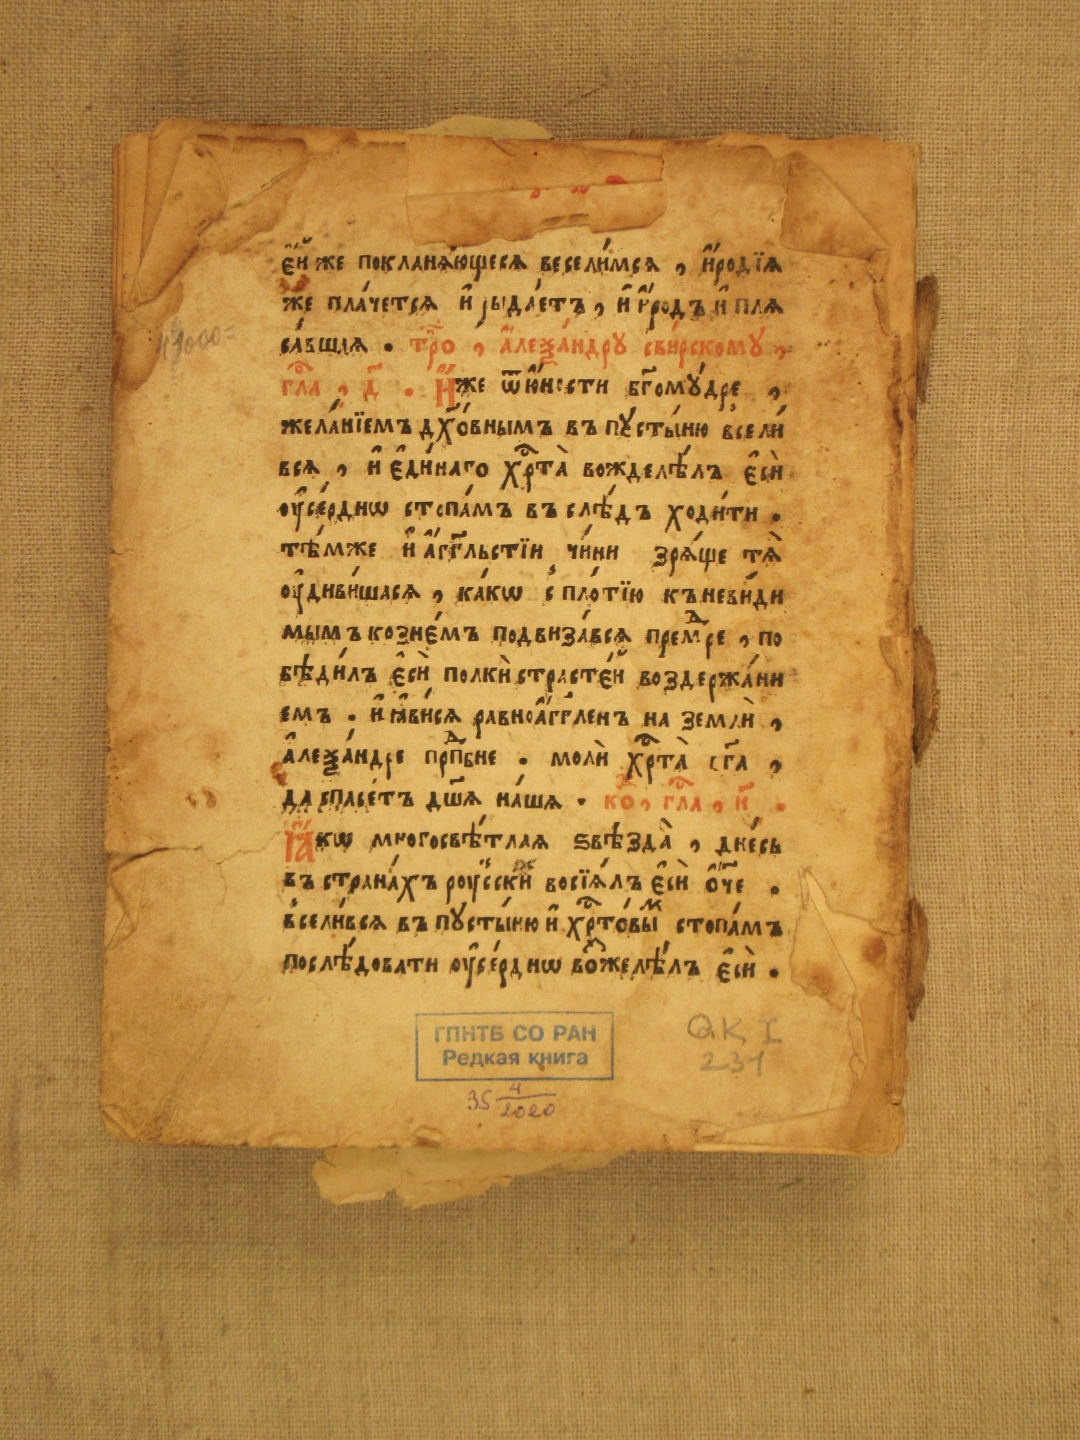 е҆́й же покланѧ́ющесѧ весели́мсѧ , и҆родїѧ
же пла́четсѧ и҆ рыда́етъ , и҆ и҆́родъ и҆плѧ
са́вшаѧ . тро̑ , а҆леѯа́ндру сви́рскому ,
гла̑ , д҃ . И҆́же ѿю҆́ности бг҃ому́дре ,
жела́нїемъ дх҃о́внымъ въпусты́ню всели́
всѧ , и҆ є҆ди́наго хрⷭ҇та̀ вожделѣ́лъ є҆сѝ
оу҆се́рднѡ стопа́мъ въслѣ́дъ ходи́ти .
тѣ́мже и҆ а҆́гг҃льстїи чи́ни зрѧ́ще тѧ̀
оу҆диви́шасѧ , ка́кѡ с пло́тїю къневи́ди
мымъ кознемъ подвиза́всѧ премⷣре , по
бѣди́лъ є҆сѝ полкѝ страсте́й воздержа́ни
емъ . и҆ ꙗ҆ви́сѧ равноа҆́гг҃ленъ на землѝ ,
а҆леѯа́ндре прпⷣбне . молѝ хрⷭ҇та̀ бг҃а ,
да спасе́тъ дш҃ѧ на́шѧ . ко̑ , гла̑ , и҃ .
Ꙗ҆́кѡ многосвѣ́тлаѧ ѕвѣзда̀ , дне́сь
въ страна́хъ роу́сскиⷯ восїѧ́лъ є҆сѝ ѻ҆́ч҃е .
всели́всѧ въпусты́ню и҆ хрⷭ҇то́выⷨ стопа́мъ
послѣ́довати оу҆се́рднѡ воⷤжелѣ́лъ є҆сѝ .
ГПНТБ СО РАН
Редкая книга
QК, I
231
35 4/2020